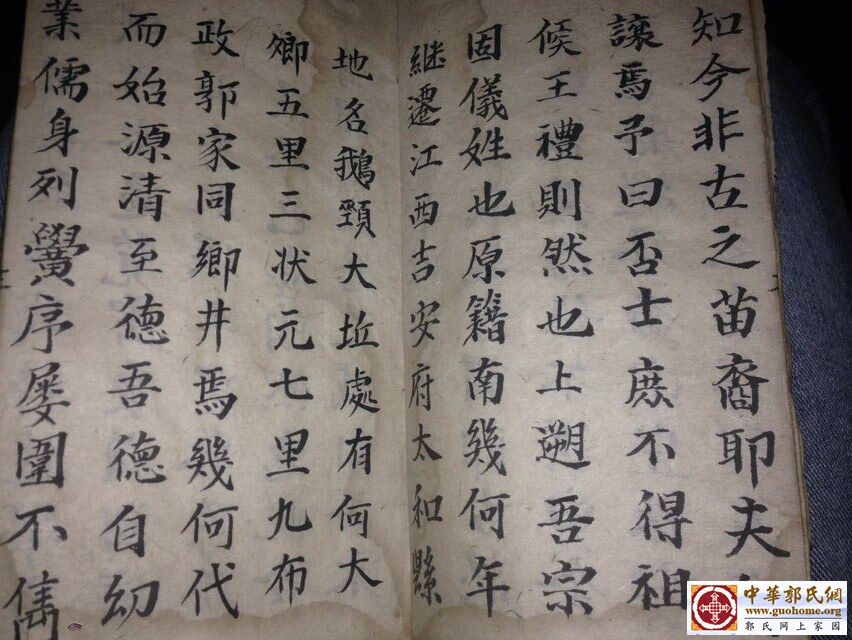 知今非古之苗裔耶夫
讓焉予曰否士庶不得祖
候王禮則然也上遡吾宗
固儀姓也原籍南幾何年
継遷江西吉安府太和縣
地名鵝頸大坵處有何大
卿五里三状元七里九布
政郭家同鄉井焉幾何代
而始源清至德吾德自幼
業儒身列黌序屡圍不雋
中華郭氏網
www.guohome.org
郭氏网上家园